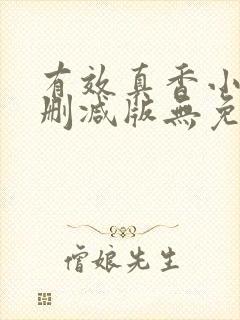 有效真香小
删减版無免
僧娘先生